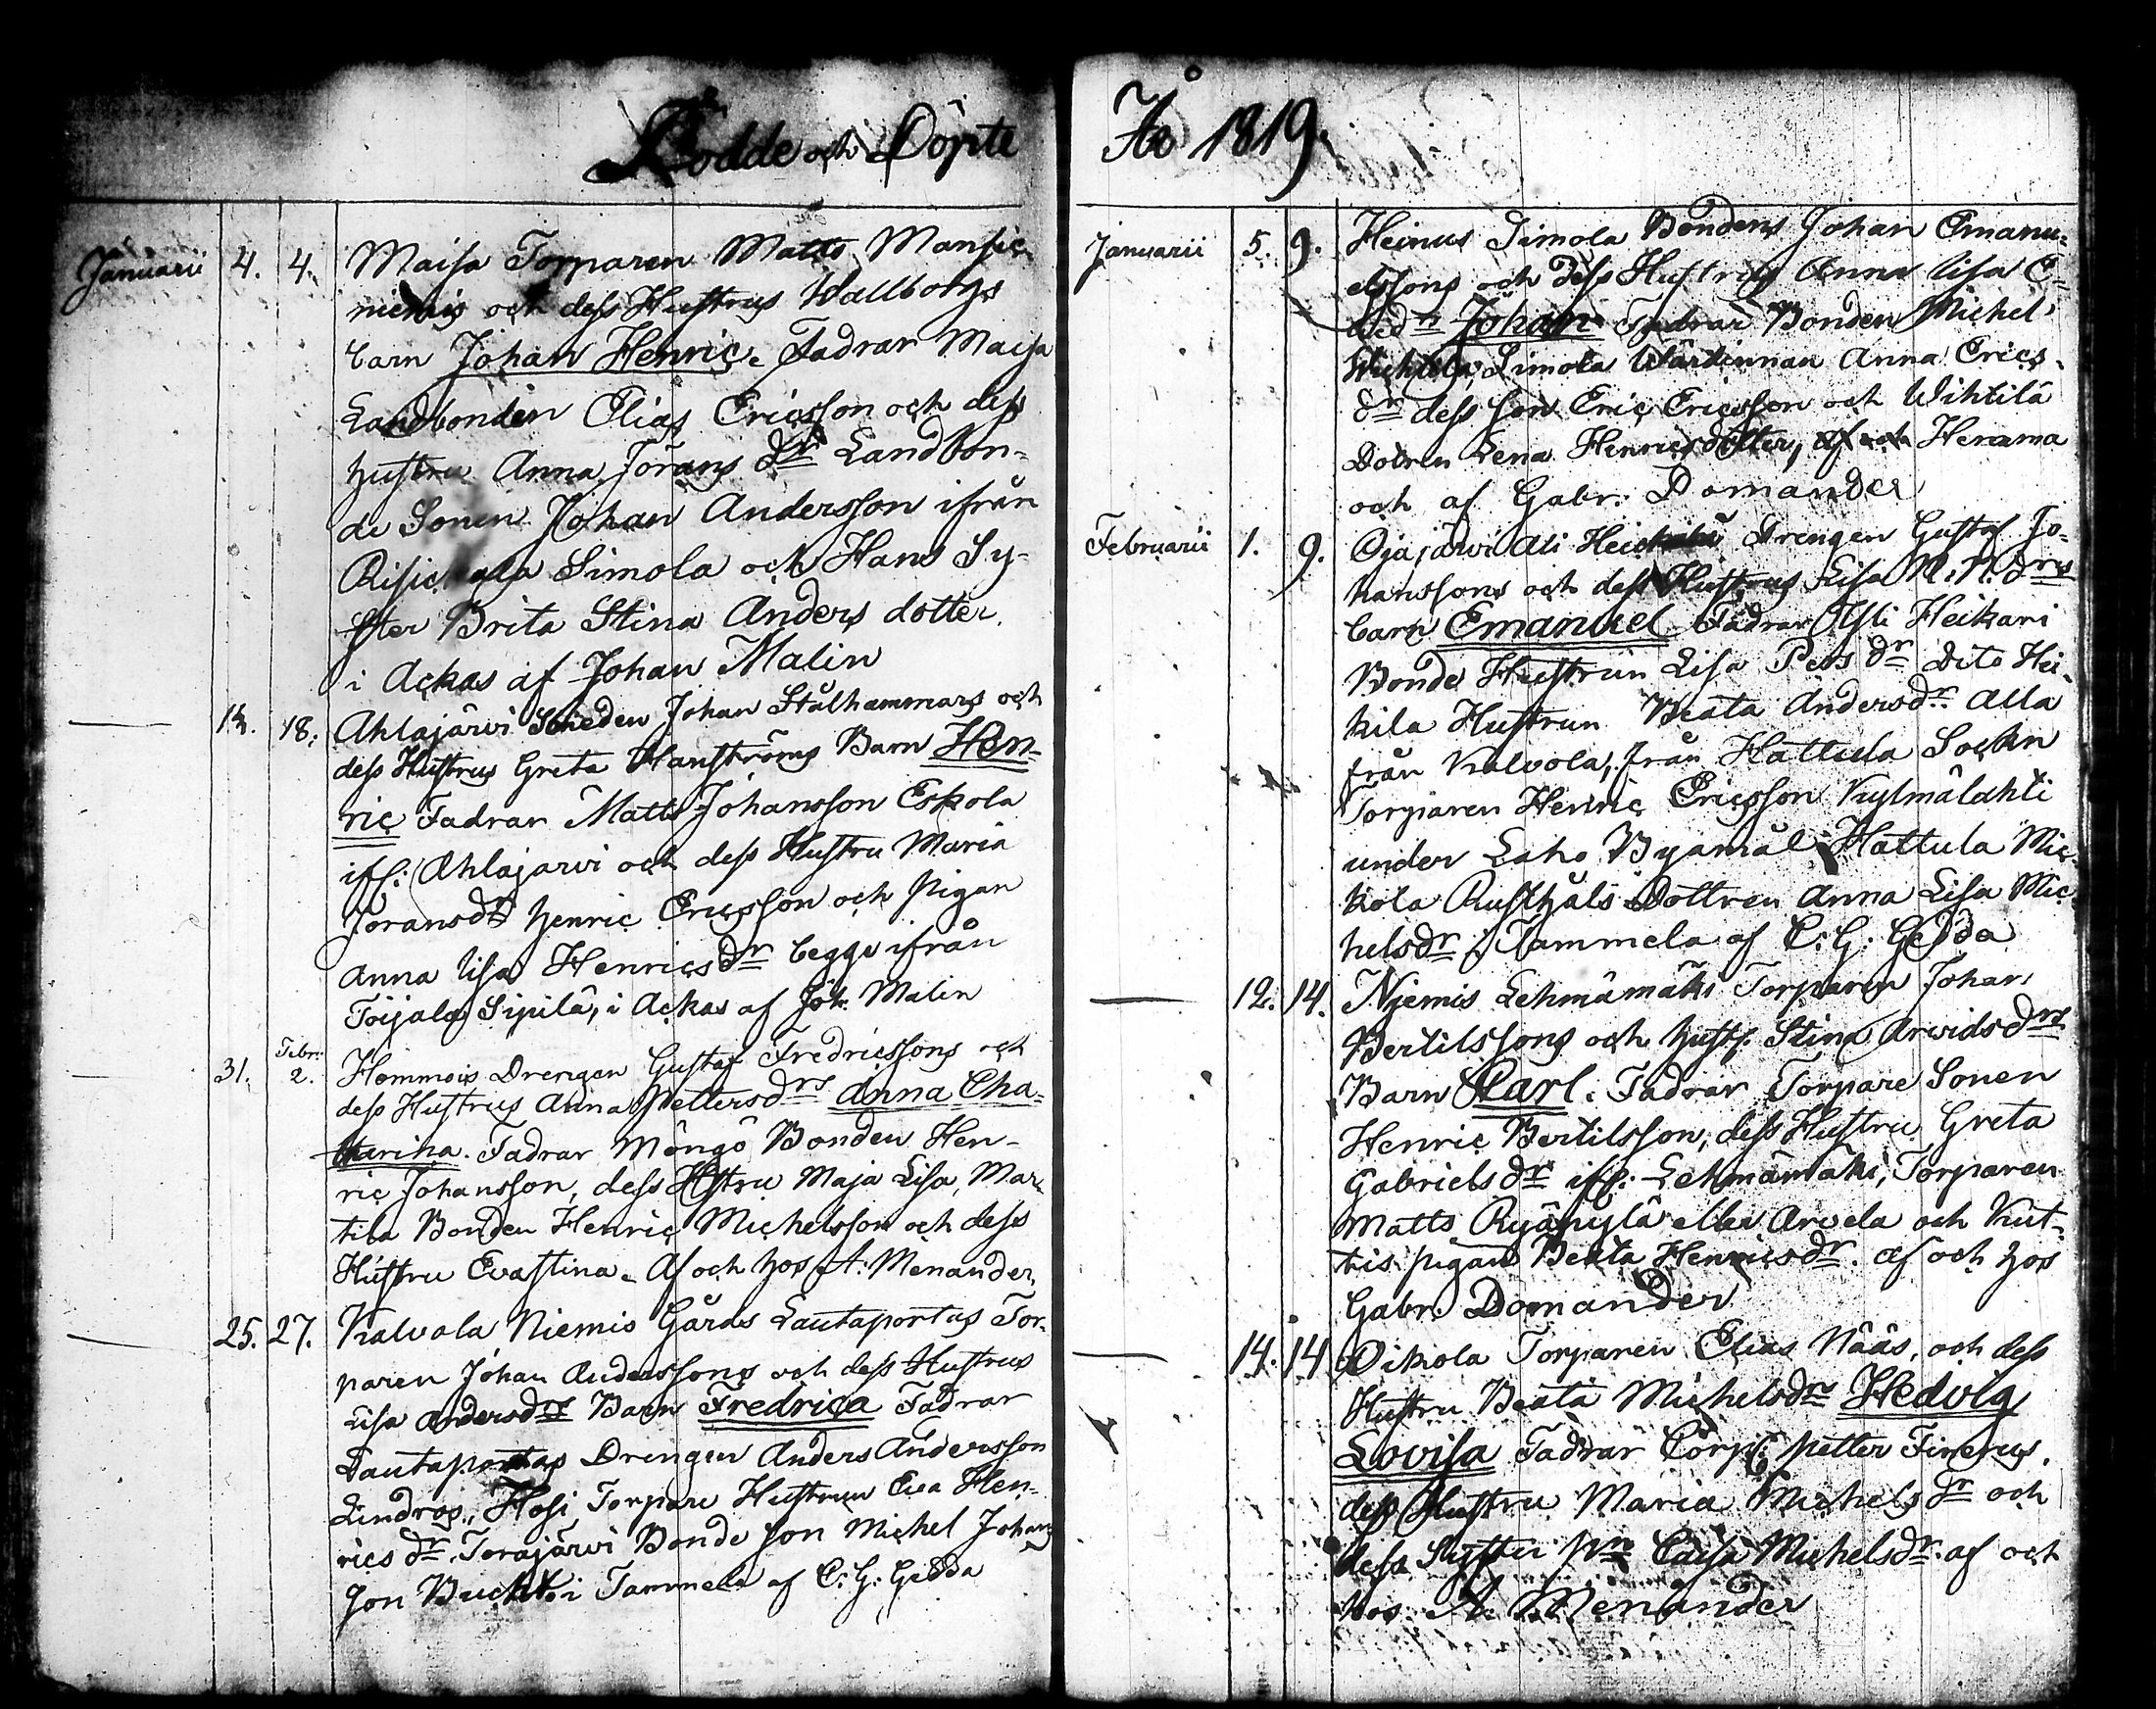 Födde och Döpte
Januarii 4. 4. Maisa Torparen Matts Mansic
niemis och dess Hustrus Wallborgs
barn Johan Henric. Fadrar Maisa
Landbonden Elias Ericsson och dess
hustru Anna Jörans dr Landbon-
de Sonen Johan Andersson ifrån
Simola och Hans Sy-
ster Brita Stina Anders dotter
i Ackas af Johan Malin
18. Ahlajärvi Smeden Johan Stålhammars och
dess Hustrus Greta Barn Hen-
ric Fadrar Matts Johansson Eskola
iffr: Ahlajarvi och dess Hustru Maria
Joransdr Henric Ericsson och pigan
Anna Lisa Henricsdr begge ifrån
Toijala Sipilä, i Ackas af Joh. Malin
31. Febr. 2. Hommois Drengen Gustaf Fredricssons och
dess Hustrus Anna Pettersdrs Anna Cha-
tharina. Fadrar Möngö Bonden Hen-
ric Johansson, dess Hstru Maja Lisa, Mar-
tila Bonden Henric Michelsson och dess
Hustru Evastina. Af och hos A. Menander,
25. 27. Kalvola Niemis Gårds Lautaportas Tor-
paren Johan Anderssons och dess Hustrus
Lisa Andersdrs Barn Fredrica Fadrar
Lautaportas Drengen Anders Andersson
Lindros, Hosi Torpare Hustrun Eva Hen-
rics dr. Torajärvi Bonde son Michel Johans
son i Tammela af C. G. Gedda
Åo 1819.
Januarii 5. 9. Heinus Simola Bondens Johan Emanu-
elssons och dess Hustrus Anna Lisa
Johan Fadrar Bonden Michel
Simola Wärdinnan Anna Erics-
dr dess son Eric Ericsson och Wihtilä
Dotren Lena Henricsdotter, Henama
och af Gabr. Domander
Februarii 1. 9. Ojajärvi Ali Drengen Gustaf Jo-
hanssons och dess Hustrus Lisa N. N. drs
barn Emanuel Fadrar Heikari
Bonde Hustrun Lisa Pers dr Dito Hei-
kila Hustrun Beata Andersdr. alla
från Kalvola, från Hattula Sockn
Torparen Henric Ericsson Kylmälahti
under Laho Byamål Hattula Mic-
kola Rusthåls Dottren Anna Lisa Mic-
helsdr i Tammela af C. G. Gedda
12. 14. Niemis Lehmämäki Torparen Johan
Bertilssons och hustr. Stina Arvidsdrs
Barn Carl. Fadrar Torpare Sonen
Henric Bertilsson, dess Hustru Greta
Gabriels dr iffr: Lehmämäki, Torparen
Matts Ryäpylä eller Arvela och Kut-
tis pigan Beata Henricsdr. af och hos
Gabr. Domander
14. 14 Oikola Torparen Elias Nääs, och dess
Hustru Beata Michelsdrs Hedvig
Lovisa Fadrar Corpl petter Finerus,
dess Hustru Maria Michels dr och
dess Syster pn Caisa Michelsdr. af och
hos A. Menander